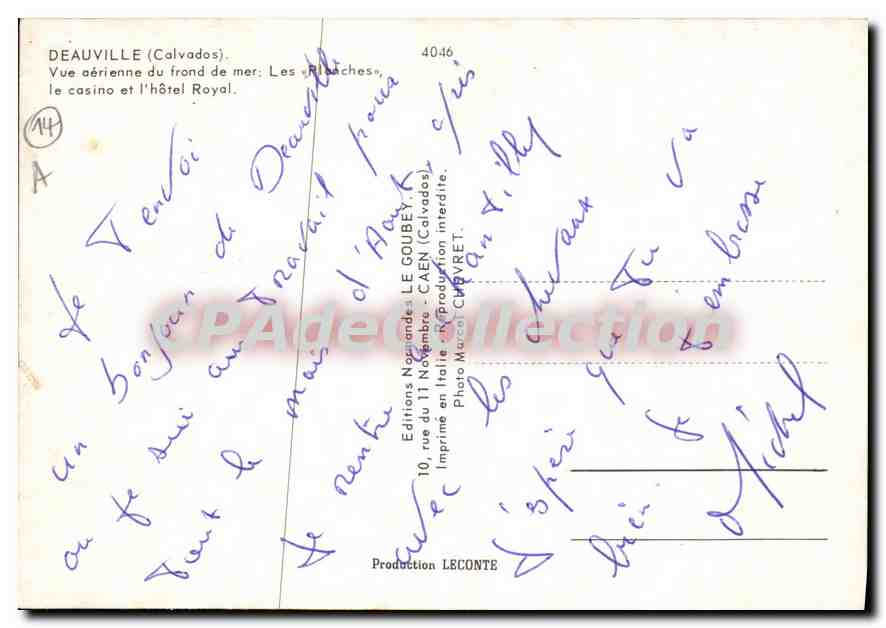 DEAUVILLE (Calvados).
Vue aérienne du frond de mer: Les «Planches»,
le casino et l'hôtel Royal.
4046
14
A
Je t'envoi
un bonjour de Deauville
ou je suis au travail pour
tout le mois d'Aout. après
Je rentre a Chantilly
avec les chevaux
J'espère que tu va
bien. Je t'embrasse
Michel
Editions Normandes LE GOUBEY.
10, rue du 11 Novembre - CAEN (Calvados)
Imprimé en Italie - Reproduction interdite.
Photo Marcel CHEVRET.
Production LECONTE
CPAdeCollection